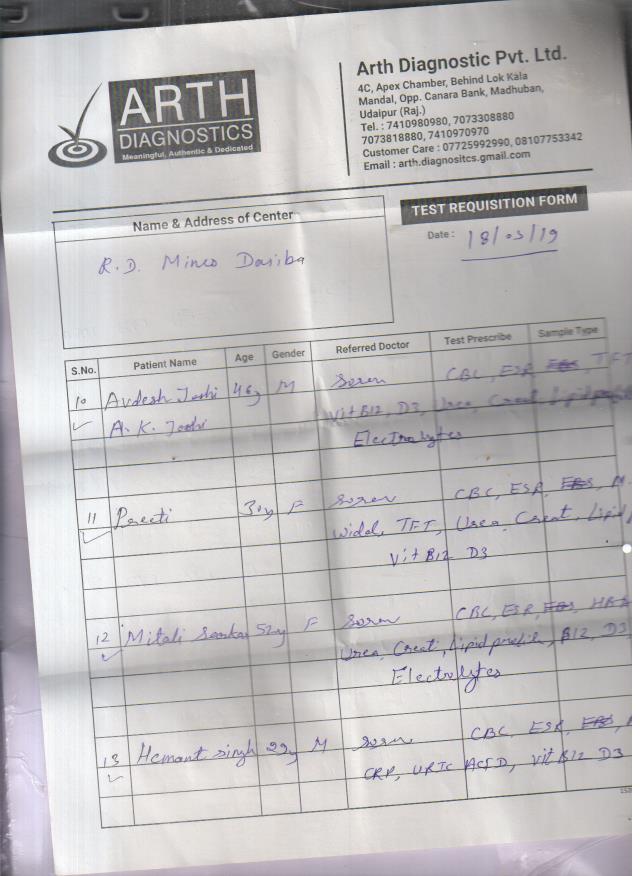 ARTH
DIAGNOSTICS
Meaningful, Authentic & Dedicated
Arth Diagnostic Pvt. Ltd.
4C, Apex Chamber, Behind Lok Kala
Mandal, Opp. Canara Bank, Madhuban,
Udaipur (Raj.)
Tel. : 7410980980, 7073308880
7073818880, 7410970970
Customer Care : 07725992990, 08107753342
Email : arth.diagnositcs.gmail.com
TEST REQUISITION FORM
Name & Address of Center
Date : 18/03/19
R.D. Mines Dariba
S.No. Patient Name Age Gender Referred Doctor Test Prescribe Sample Type
10 Avdesh Joshi 46y M Soren CBC, ESR, FBS, TFT
A. K. Joshi Vit B12, D3, Urea, Creat, Lipid profile
Electrolytes
11 Preeti 30y F Soren CBC, ESR, FBS,
Widal, TFT, Urea, Creat, Lipid
Vit B12 D3
12 Mitali Sarkar 52y F Soren CBC, ESR, FBS,
Urea, Creat, Lipid profile, B12, D3,
Electrolytes
13 Hemant Singh 29y M Soren CBC, ESR, FBS,
CRP, URIC ACID, Vit B12 D3